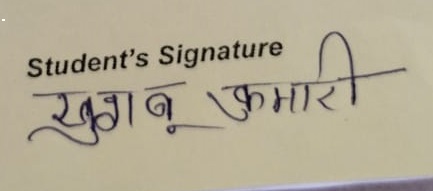 Student's Signature
खुशबू कुमारी